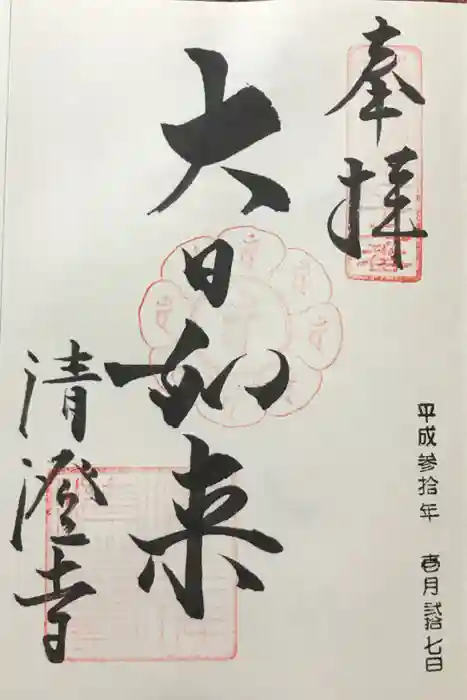 奉拝
平成参拾年 壱月弐拾七日
大日如来
清澄寺